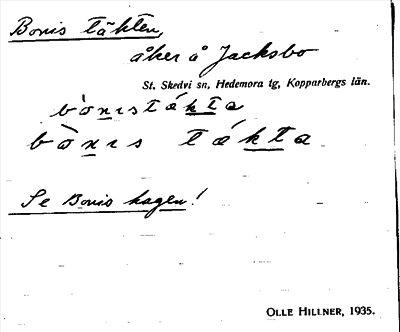 Bonis täkten,
åker å Jacksbo
St. Skedvi sn, Hedemora tg, Kopparbergs län.
bònıstákta
bònıs tákta
Se Bonis hagen!
OLLE HILLNER, 1935.